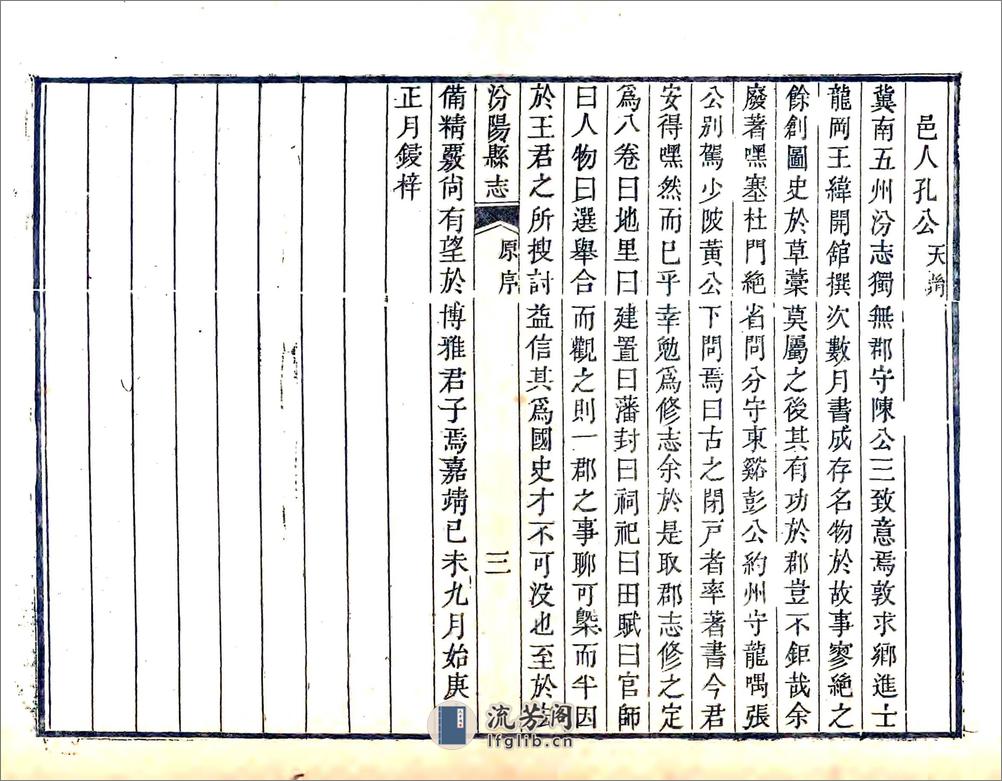 邑人孔公天
冀南五州汾志獨無郡守陳公三致意焉敦求鄉進士
龍岡王緯開舘撰次數月書成存名物於故事寥絶之
餘創圖史於草藁莫屬之後其有功於郡豈不鉅哉余
廢著嘿塞杜門絶省問分守東谿彭公約州守龍喁張
公别駕少陂黃公下問焉曰古之閉戸者率著書今君
安得嘿然而已乎幸勉爲修志余於是取郡志修之定
爲八卷曰地里曰建置曰藩封曰祠祀曰田賦曰官師
曰人物曰選舉合而觀之則一郡之事聊可槩而半因
於王君之所搜討益信其爲國史才不可没也至於
汾陽縣志
原序
三
備精覈尙有望於博雅君子焉嘉靖己未九月始庚
正月鋟梓
流芳阁
lfglib.cn